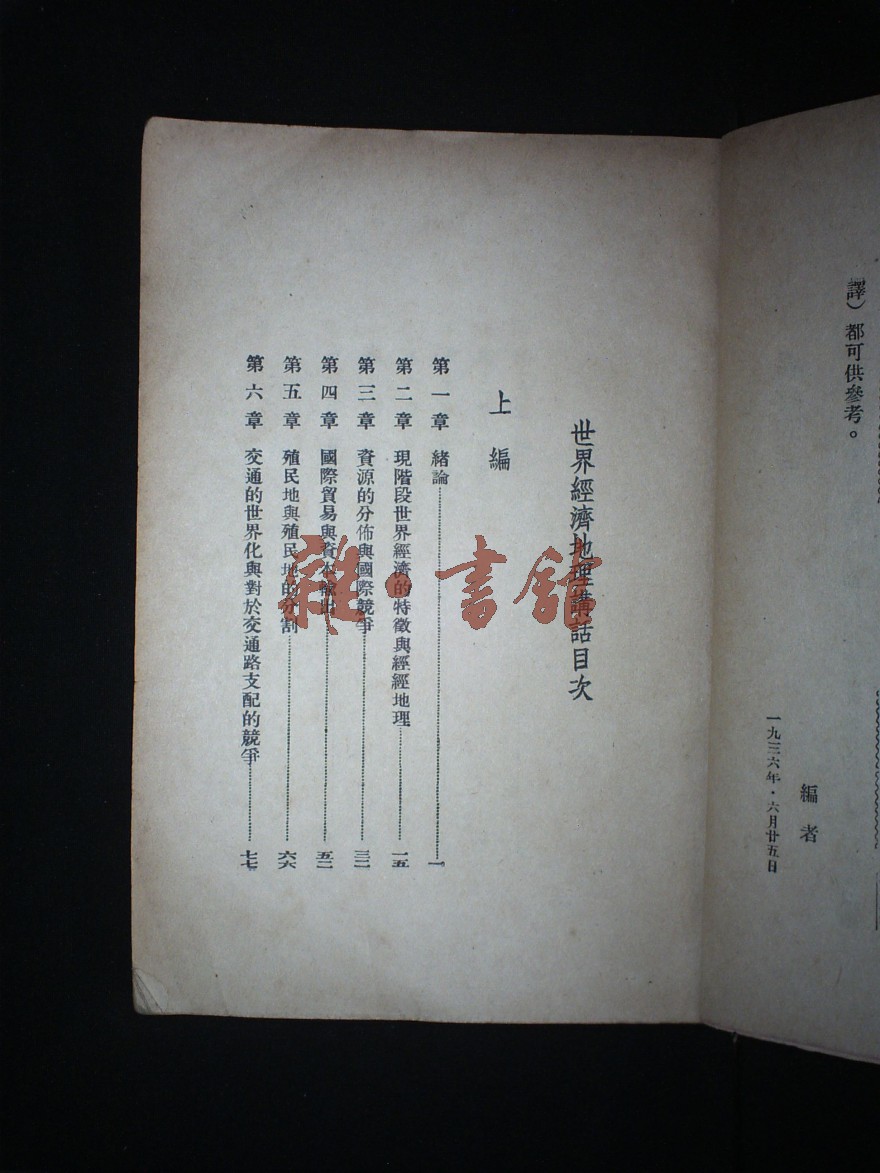 譯）都可供參考。
編者
一九三六年．六月廿五日
世界經濟地理講話目次
上編
第一章　緒論………一
第二章　現階段世界經濟的特徵與經經地理………一五
第三章　資源的分佈與國際競爭………三二
第四章　國際貿易與資本輸出………五二
第五章　殖民地與殖民地的分割………六六
第六章　交通的世界化與對於交通路支配的競爭………七七
雜·書館